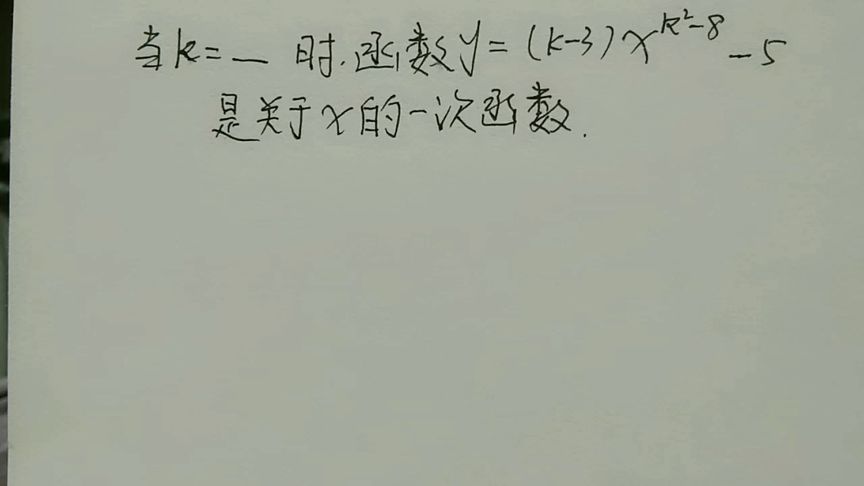 当k=_时.函数y=(k-3)x^{k²-8}-5
是关于x的一次函数.